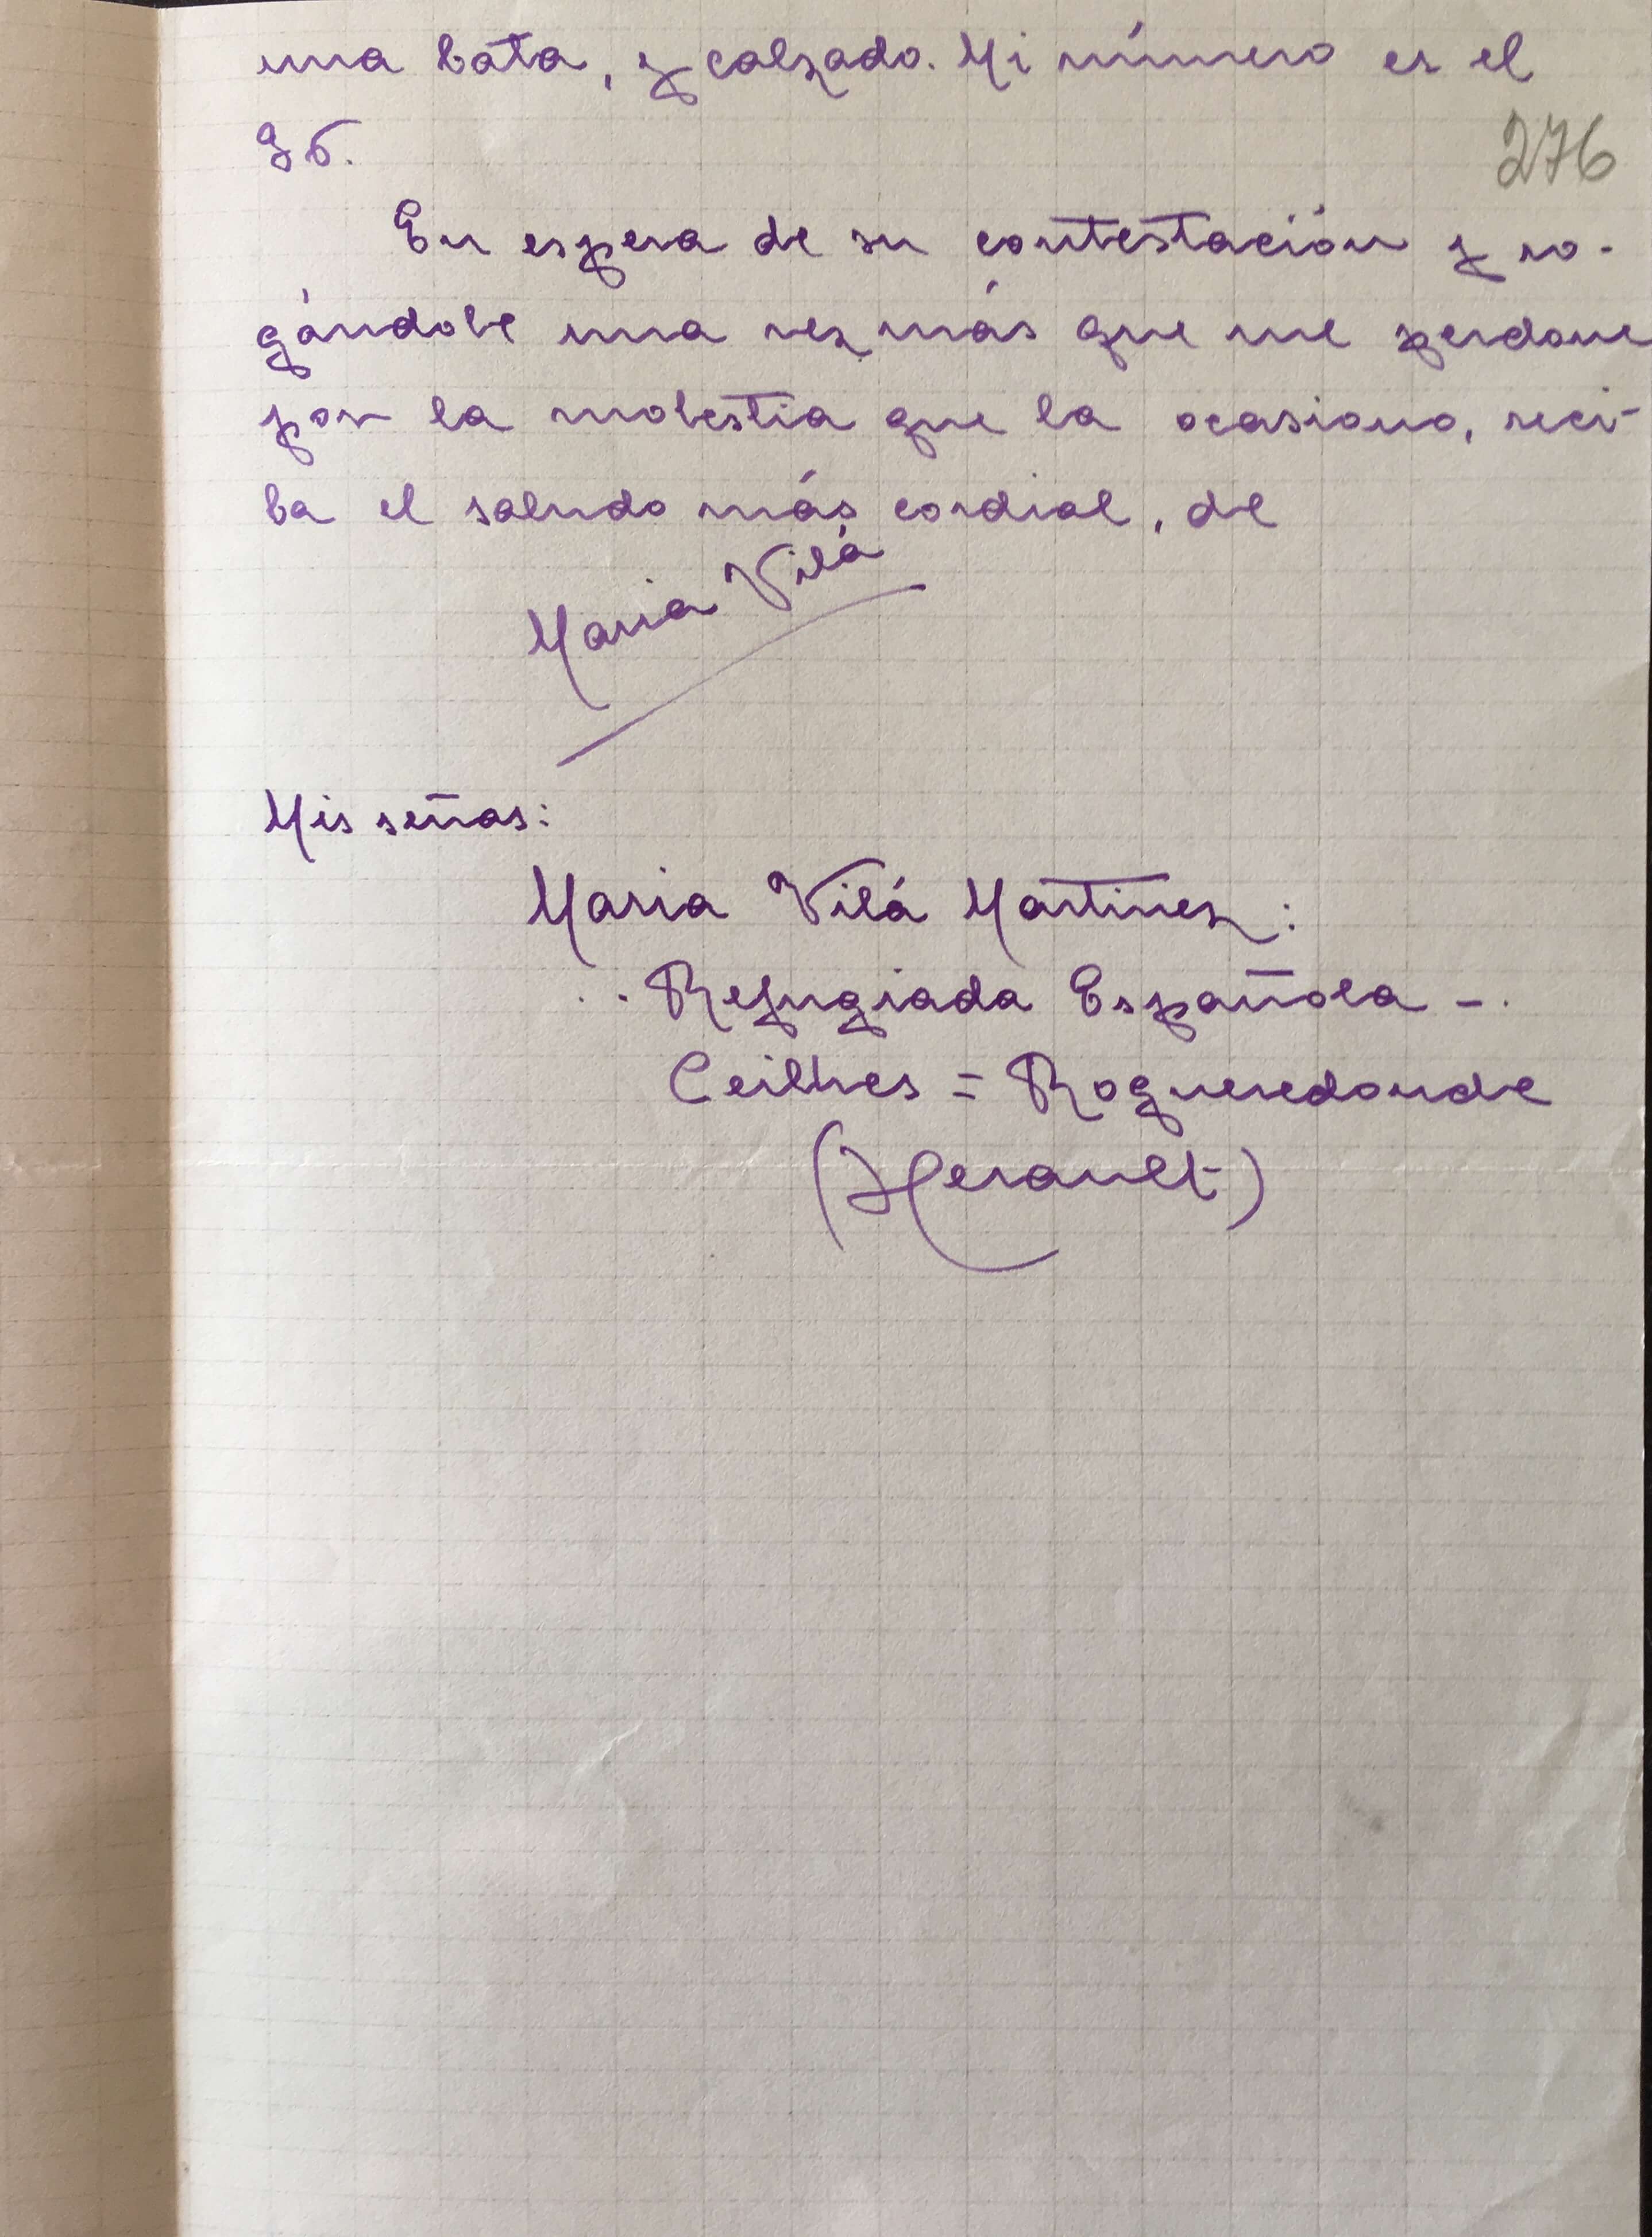 una bata, y calzado. Mi número es el
36.
276
En espera de su contestación y ro-
gándole una vez más que me perdone
por la molestia que la ocasiono, reci-
ba el saludo más cordial, de
Maria Vilá
Mis señas:
Maria Vilá Martinez:
. . Refugiada Española - .
Ceilhes = Roqueredonde
(Herault)